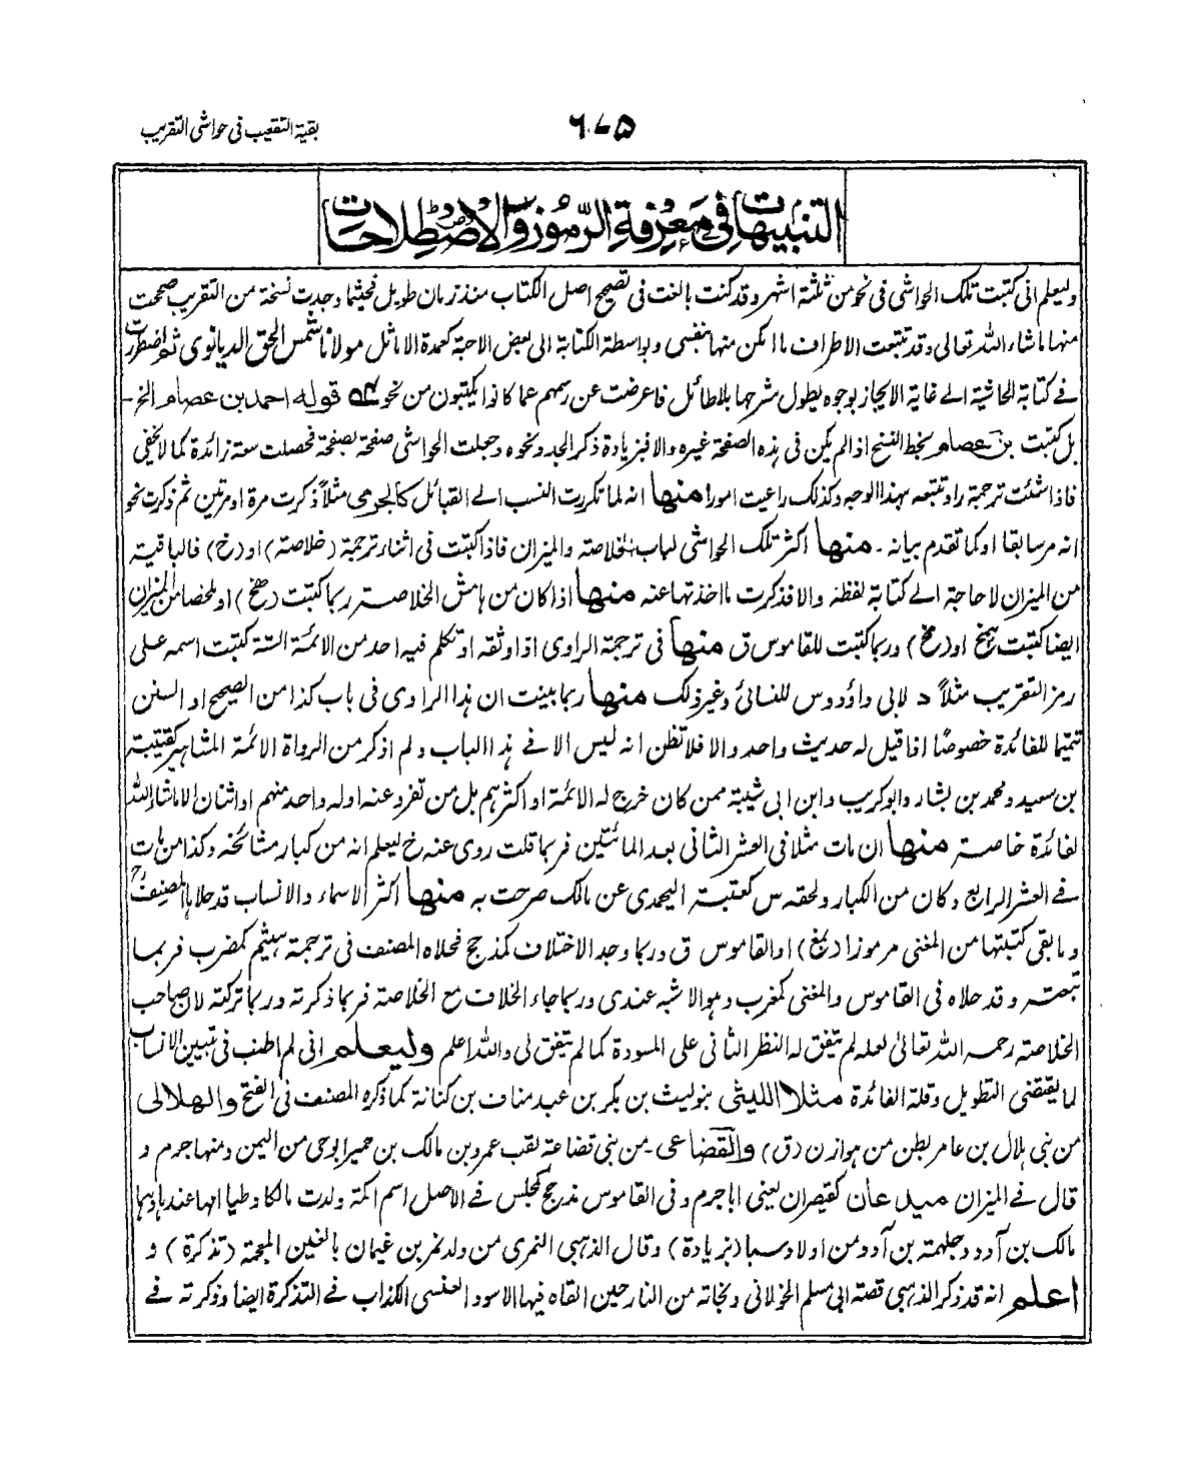 بقية التقعيب فى حواشى التقريب
٦٠٥
التنبيهات فى معرفة الرموز والاصطلاحات
وليعلم انى كتبت تلك الحواشى فى نحو من ثلثة اشهر وقد كنت بالغت فى تصحيح اصل الكتاب منذ زمان طويل فحيثما وجدت نسخة من التقريب صححت
منها ما شاء الله تعالى وقد تتبعت الاطراف ما امكن منها بنفسى وبواسطة الكتابة الى بعض الاحبة كعمدة الاماثل مولانا شمس الحق الديانوى ثم اضطررت
فے كتابة الحاشية الے غاية الايجاز بوجوه يطول شرحها بلا طائل فاعرضت عن رسمهم عما كانوا يكتبون من نحو قوله احمد بن عصام الخ
بل كتبت بن عصام بخط النسخ اذا لم يكن فى هذه الصفحة غيره والا فبزيادة ذكر الجد ونحوه وجعلت الحواشى صفحة بصفحة فحصلت سعة زائدة كما لا يخفى
فاذا شئت ترجمة راو تتبعه بهذا الوجه وكذلك راعيت امورا منها انه لما تكررت النسب الے القبائل كالجرمى مثلاً ذكرت مرة او مرتين ثم ذكرت نحو
انه مر سابقا او كما تقدم بيانه - منها اكثر تلك الحواشى لباب الخلاصة والميزان فاذا كتبت فى اثناء ترجمة (خلاصة) او (خ) فالباقية
من الميزان لا حاجة الے كتابة لفظه والا فذكرت ما اخذتها عنه منها اذا كان من هامش الخلاصة ربما كتبت (صخ) او ملخصا من الميزان
ايضا كتبت او (مخ) وربما كتبت للقاموس ق منها فى ترجمة الراوى اذا وثقه او تكلم فيه احد من الائمة الستة كتبت اسمه على
رمز التقريب مثلاً د لابى داؤد وس للنسائى وغير ذلك منها ربما بينت ان هذا الراوى فى باب كذا من الصحيح او السنن
تتميما للفائدة خصوصًا اذا قيل له حديث واحد والا فلا تظن انه ليس الا فے هذا الباب ولم اذكر من الرواة الائمة المشاهير كقتيبة
بن سعيد ومحمد بن بشار وابو كريب وابن ابى شيبة ممن كان خرج له الائمة او اكثرهم بل من تفرد عنه اوله واحد منهم او اثنان الا ما شاء الله
لفائدة خاصة منها ان مات مثلا فى العشر الثانى بعد المائتين فربما قلت روى عنه خ ليعلم انه من كبار مشائخه وكذا من مات
فے العشر الرابع وكان من الكبار ولحقه س كعتبة اليحمدى عن مالك صرحت به منها اكثر الاسماء والانساب قد حلاها المصنف رح
وما بقى كتبتها من المغنى مرموزا (مغ) او القاموس ق وربما وجد الاختلاف كمذحج فحلاه المصنف فى ترجمة هيثم كمضرب فربما
تبعته وقد حلاه فى القاموس والمغنى كمغرب وهو الاشبه عندى وربما جاء الخلاف مع الخلاصة فربما ذكرته وربما تركته لان صاحب
الخلاصة رحمه الله تعالى لعله لم يتفق له النظر الثانى على المسودة كما لم يتفق لى والله اعلم وليعلم انى لم اطنب فى تبيين الانساب
لما يقتضى التطويل وقلة الفائدة مثلا الليثى بنو ليث بن بكر بن عبد مناف بن كنانة كما ذكره المصنف فى الفتح والهلالى
من بنى هلال بن عامر بطن من هوازن (ق) والقضاعى - من بنى قضاعة لقب عمرو بن مالك بن حمير ابو حى من اليمن ومنها جرم و
قال فے الميزان ميدعان كقيصران يعنى ابا جرم وفى القاموس مذحج كمجلس فے الاصل اسم اكمة ولدت مالكا وطيا امها عندها وهما
مالك بن ادد وجلهمة بن ادد من اولاد سبا (بزيادة) وقال الذهبى النمرى من ولد نمر بن غيمان بالغين المعجمة (تذكرة) و
اعلم انه قد ذكر الذهبى قصة ابى مسلم الخولانى ونجاته من النار حين القاه فيها الاسود العنسى الكذاب فے التذكرة ايضا وذكرته فے